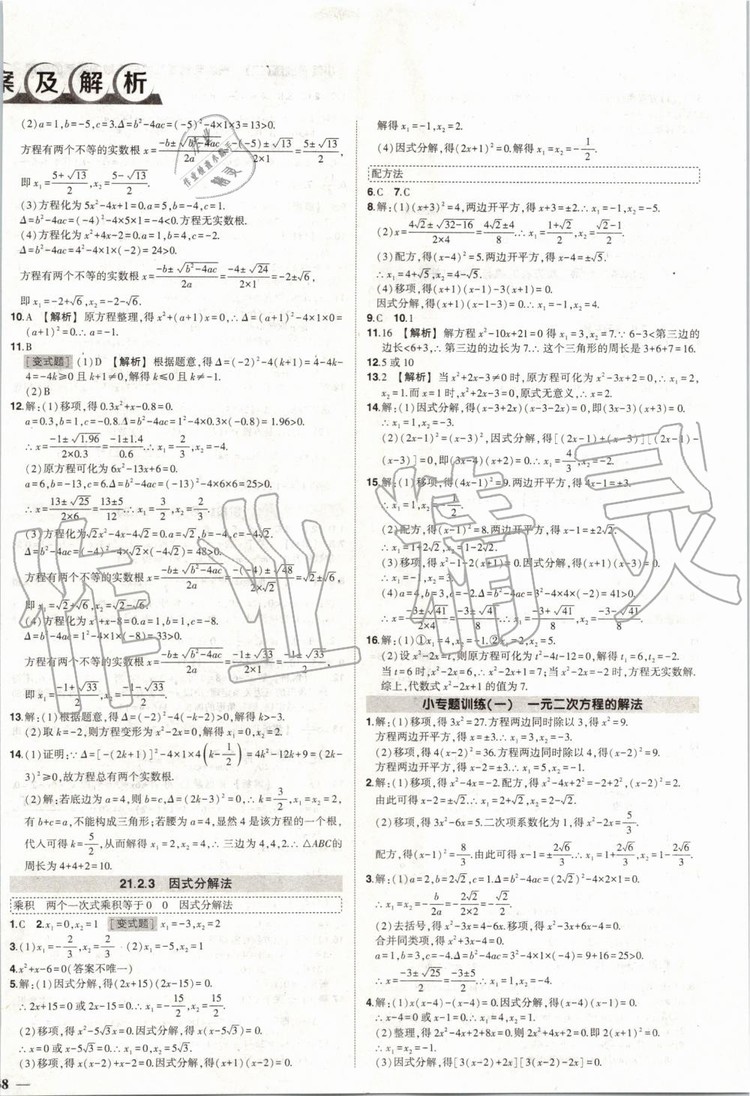 案及解析
(2)a=1,b=-5,c=3.Δ=b²-4ac=(-5)²-4×1×3=13>0.
方程有两个不等的实数根 x=(-b±√(b²-4ac))/2a=(-(-5)±√13)/(2×1)=(5±√13)/2,
即 x₁=(5+√13)/2,x₂=(5-√13)/2.
(3)方程化为 5x²-4x+1=0.a=5,b=-4,c=1.
Δ=b²-4ac=(-4)²-4×5×1=-4<0.方程无实数根.
(4)方程化为 x²+4x-2=0.a=1,b=4,c=-2.
Δ=b²-4ac=4²-4×1×(-2)=24>0.
方程有两个不等的实数根 x=(-b±√(b²-4ac))/2a=(-4±√24)/(2×1)=-2±√6,
即 x₁=-2+√6,x₂=-2-√6.
10.A 【解析】原方程整理,得 x²+(a+1)x=0.∴Δ=(a+1)²-4×1×0=
(a+1)²=0.∴a=-1.
11.B
[变式题] (1)D 【解析】根据题意,得 Δ=(-2)²-4(k+1)=4-4k-
4=-4k≥0 且 k+1≠0,解得 k≤0 且 k≠-1.
(2)B
12.解:(1)移项,得 0.3x²+x-0.8=0.
a=0.3,b=1,c=-0.8.Δ=b²-4ac=1²-4×0.3×(-0.8)=1.96>0.
∴x=(-1±√1.96)/(2×0.3)=(-1±1.4)/0.6.∴x₁=2/3,x₂=-4.
(2)原方程可化为 6x²-13x+6=0.
a=6,b=-13,c=6.Δ=b²-4ac=(-13)²-4×6×6=25>0.
∴x=(13±√25)/(2×6)=(13±5)/12.∴x₁=3/2,x₂=2/3.
(3)方程化为 √2x²-4x-4√2=0.a=√2,b=-4,c=-4√2.
Δ=b²-4ac=(-4)²-4×√2×(-4√2)=48>0.
方程有两个不等的实数根 x=(-b±√(b²-4ac))/2a=(-(-4)±√48)/(2×√2)=√2±√6,
即 x₁=√2+√6,x₂=√2-√6.
(4)方程化为 x²+x-8=0.a=1,b=1,c=-8.
Δ=b²-4ac=1²-4×1×(-8)=33>0.
方程有两个不等的实数根 x=(-b±√(b²-4ac))/2a=(-1±√33)/(2×1)=(-1±√33)/2,
即 x₁=(-1+√33)/2,x₂=(-1-√33)/2.
13.解:(1)根据题意,得 Δ=(-2)²-4(-k-2)>0,解得 k>-3.
(2)取 k=-2,则方程变形为 x²-2x=0,解得 x₁=0,x₂=2.
14.(1)证明:∵Δ=[-(2k+1)]²-4×1×4(k-1/2)=4k²-12k+9=(2k-
3)²≥0,故该方程总有两个实数根.
(2)解:若底边为 a=4,则 b=c,Δ=(2k-3)²=0.∴k=3/2,x₁=x₂=2,
有 b+c=a,不能构成三角形;若腰为 a=4,显然 4 是该方程的一个根,
代入可得 k=5/2,从而解得 x₁=2,x₂=4,∴三边为 4,4,2.∴△ABC 的
周长为 4+4+2=10.
21.2.3 因式分解法
乘积 两个一次式乘积等于 0 0 因式分解法
1.C 2.x₁=0,x₂=1 [变式题] x₁=-3,x₂=2
3.(1)x₁=-2/3,x₂=2/3 (2)x₁=-5,x₂=1
4.x²+x-6=0(答案不唯一)
5.解:(1)因式分解,得(2x+15)(2x-15)=0.
∴2x+15=0 或 2x-15=0.∴x₁=-15/2,x₂=15/2.
(2)移项,得 x²-5√3x=0.因式分解,得 x(x-5√3)=0.
∴x=0 或 x-5√3=0.∴x₁=0,x₂=5√3.
(3)移项,得 x²-x-2=0.因式分解,得(x+1)(x-2)=0.
解得 x₁=-1,x₂=2.
(4)因式分解,得(2x+1)²=0.解得 x₁=x₂=-1/2.
配方法
6.C 7.C
8.解:(1)(x+3)²=4,两边开平方,得 x+3=±2.∴x₁=-1,x₂=-5.
(2)x=(4√2±√(32-16))/(2×4)=(4√2±4)/8.∴x₁=(1+√2)/2,x₂=(√2-1)/2.
(3)配方,得(x-4)²=5.两边开平方,得 x-4=±√5.
∴x₁=4+√5,x₂=4-√5.
(4)移项,得(x+1)(x-1)-3(x+1)=0.
因式分解,得(x+1)(x-1-3)=0.∴x₁=-1,x₂=4.
9.C 10.1
11.16 【解析】解方程 x²-10x+21=0 得 x₁=3,x₂=7.∵6-3<第三边的
边长<6+3,∴第三边的边长为 7.∴这个三角形的周长为 3+6+7=16.
12.5 或 10
13.2 【解析】当 x²+2x-3≠0 时,原方程可化为 x²-3x+2=0,∴x₁=2,
x₂=1.而 x=1 时,x²+2x-3=0,原式无意义,∴x=2.
14.解:(1)因式分解,得(x-3+2x)(x-3-2x)=0,即(3x-3)(x+3)=0.
∴x₁=1,x₂=-3.
(2)(2x-1)²=(x-3)²,因式分解,得[(2x-1)+(x-3)][(2x-1)-
(x-3)]=0,即(3x-4)(x+2)=0.∴x₁=4/3,x₂=-2.
15.解:(1)移项,得(4x-1)²=9.两边开平方,得 4x-1=±3.
(2)配方,得(x-1)²=8.两边开平方,得 x-1=±2√2.
∴x₁=1+2√2,x₂=1-2√2.
(3)移项,得 x²-1-2(x+1)=0.因式分解,得(x+1)(x-3)=0.
∴x₁=-1,x₂=3.
(4)a=4,b=3,c=-2.Δ=b²-4ac=3²-4×4×(-2)=41>0.
∴x=(-3±√41)/(2×4)=(-3±√41)/8.∴x₁=(-3+√41)/8,x₂=(-3-√41)/8.
16.解:(1)①x₁=4,x₂=-1.②x₁=2,x₂=5.
(2)设 x²-2x=t,则原方程可化为 t²-4t-12=0,解得 t₁=6,t₂=-2.
当 t=6 时,x²-2x=6,x²-2x+1=7;当 t=-2 时,x²-2x=-2,方程无实数解.
综上,代数式 x²-2x+1 的值为 7.
小专题训练(一) 一元二次方程的解法
1.解:(1)移项,得 3x²=27.方程两边同时除以 3,得 x²=9.
方程两边开平方,得 x=±3.∴x₁=3,x₂=-3.
(2)移项,得 4(x-3)²=16.方程两边同时除以 4,得(x-3)²=4.
方程两边开平方,得 x-3=±2.∴x₁=5,x₂=1.
2.解:(1)移项,得 x²-4x=-2.配方,得 x²-4x+2²=-2+2²,(x-2)²=2.
由此可得 x-2=±√2.∴x₁=2+√2,x₂=2-√2.
(2)移项,得 3x²-6x=5.二次项系数化为 1,得 x²-2x=5/3.
配方,得(x-1)²=8/3.由此可得 x-1=±2√6/3.∴x₁=1+2√6/3,x₂=1-2√6/3.
3.解:(1)a=2,b=2√2,c=1.Δ=b²-4ac=(2√2)²-4×2×1=0.
∴x₁=x₂=-b/2a=-2√2/(2×2)=-√2/2.
(2)去括号,得 x²-3x=4x-6x.移项,得 x²-3x-4+6x=0.
合并同类项,得 x²+3x-4=0.
a=1,b=3,c=-4.Δ=b²-4ac=3²-4×1×(-4)=9+16=25>0.
∴x=(-3±√25)/(2×1)=(-3±5)/2.∴x₁=1,x₂=-4.
4.解:(1)x(x-4)-(x-4)=0.因式分解,得(x-4)(x-1)=0.
∴x-4=0 或 x-1=0.∴x₁=4,x₂=1.
(2)整理,得 2x²-4x+2+8x=0.则 2x²+4x+2=0,即 2(x+1)²=0.
∴x₁=x₂=-1.
(3)因式分解,得[3(x-2)+2x][3(x-2)-2x]=0.
58
作业精灵